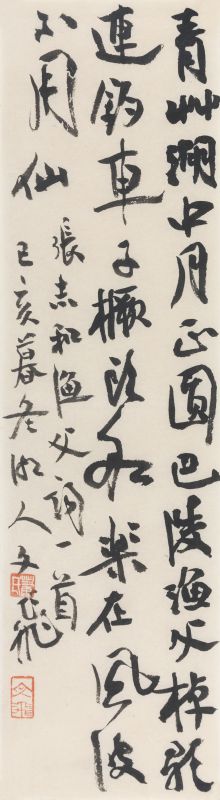 青艸湖中月正圓巴陵漁父棹歌
連釣車子橛頭船樂在風波
不用仙
張志和漁父詞一首
己亥暮冬湘人文飛